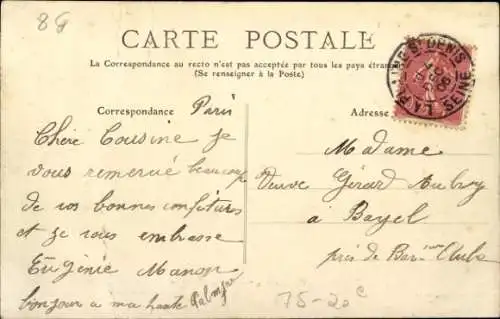 8G
CARTE POSTALE
La Correspondance au recto n'est pas acceptée par tous les pays étran
(Se renseigner à la Poste)
Correspondance
Paris
Chère Cousine je
vous remercie beaucoup
de vos bonnes confitures
et je vous embrasse
Eugénie Manon
bonjour a ma
Adresse
Madame
Veuve Gérard Aubry
à Bayel
près de Bar sur Aube
ST DENIS
SEINE
75-20c